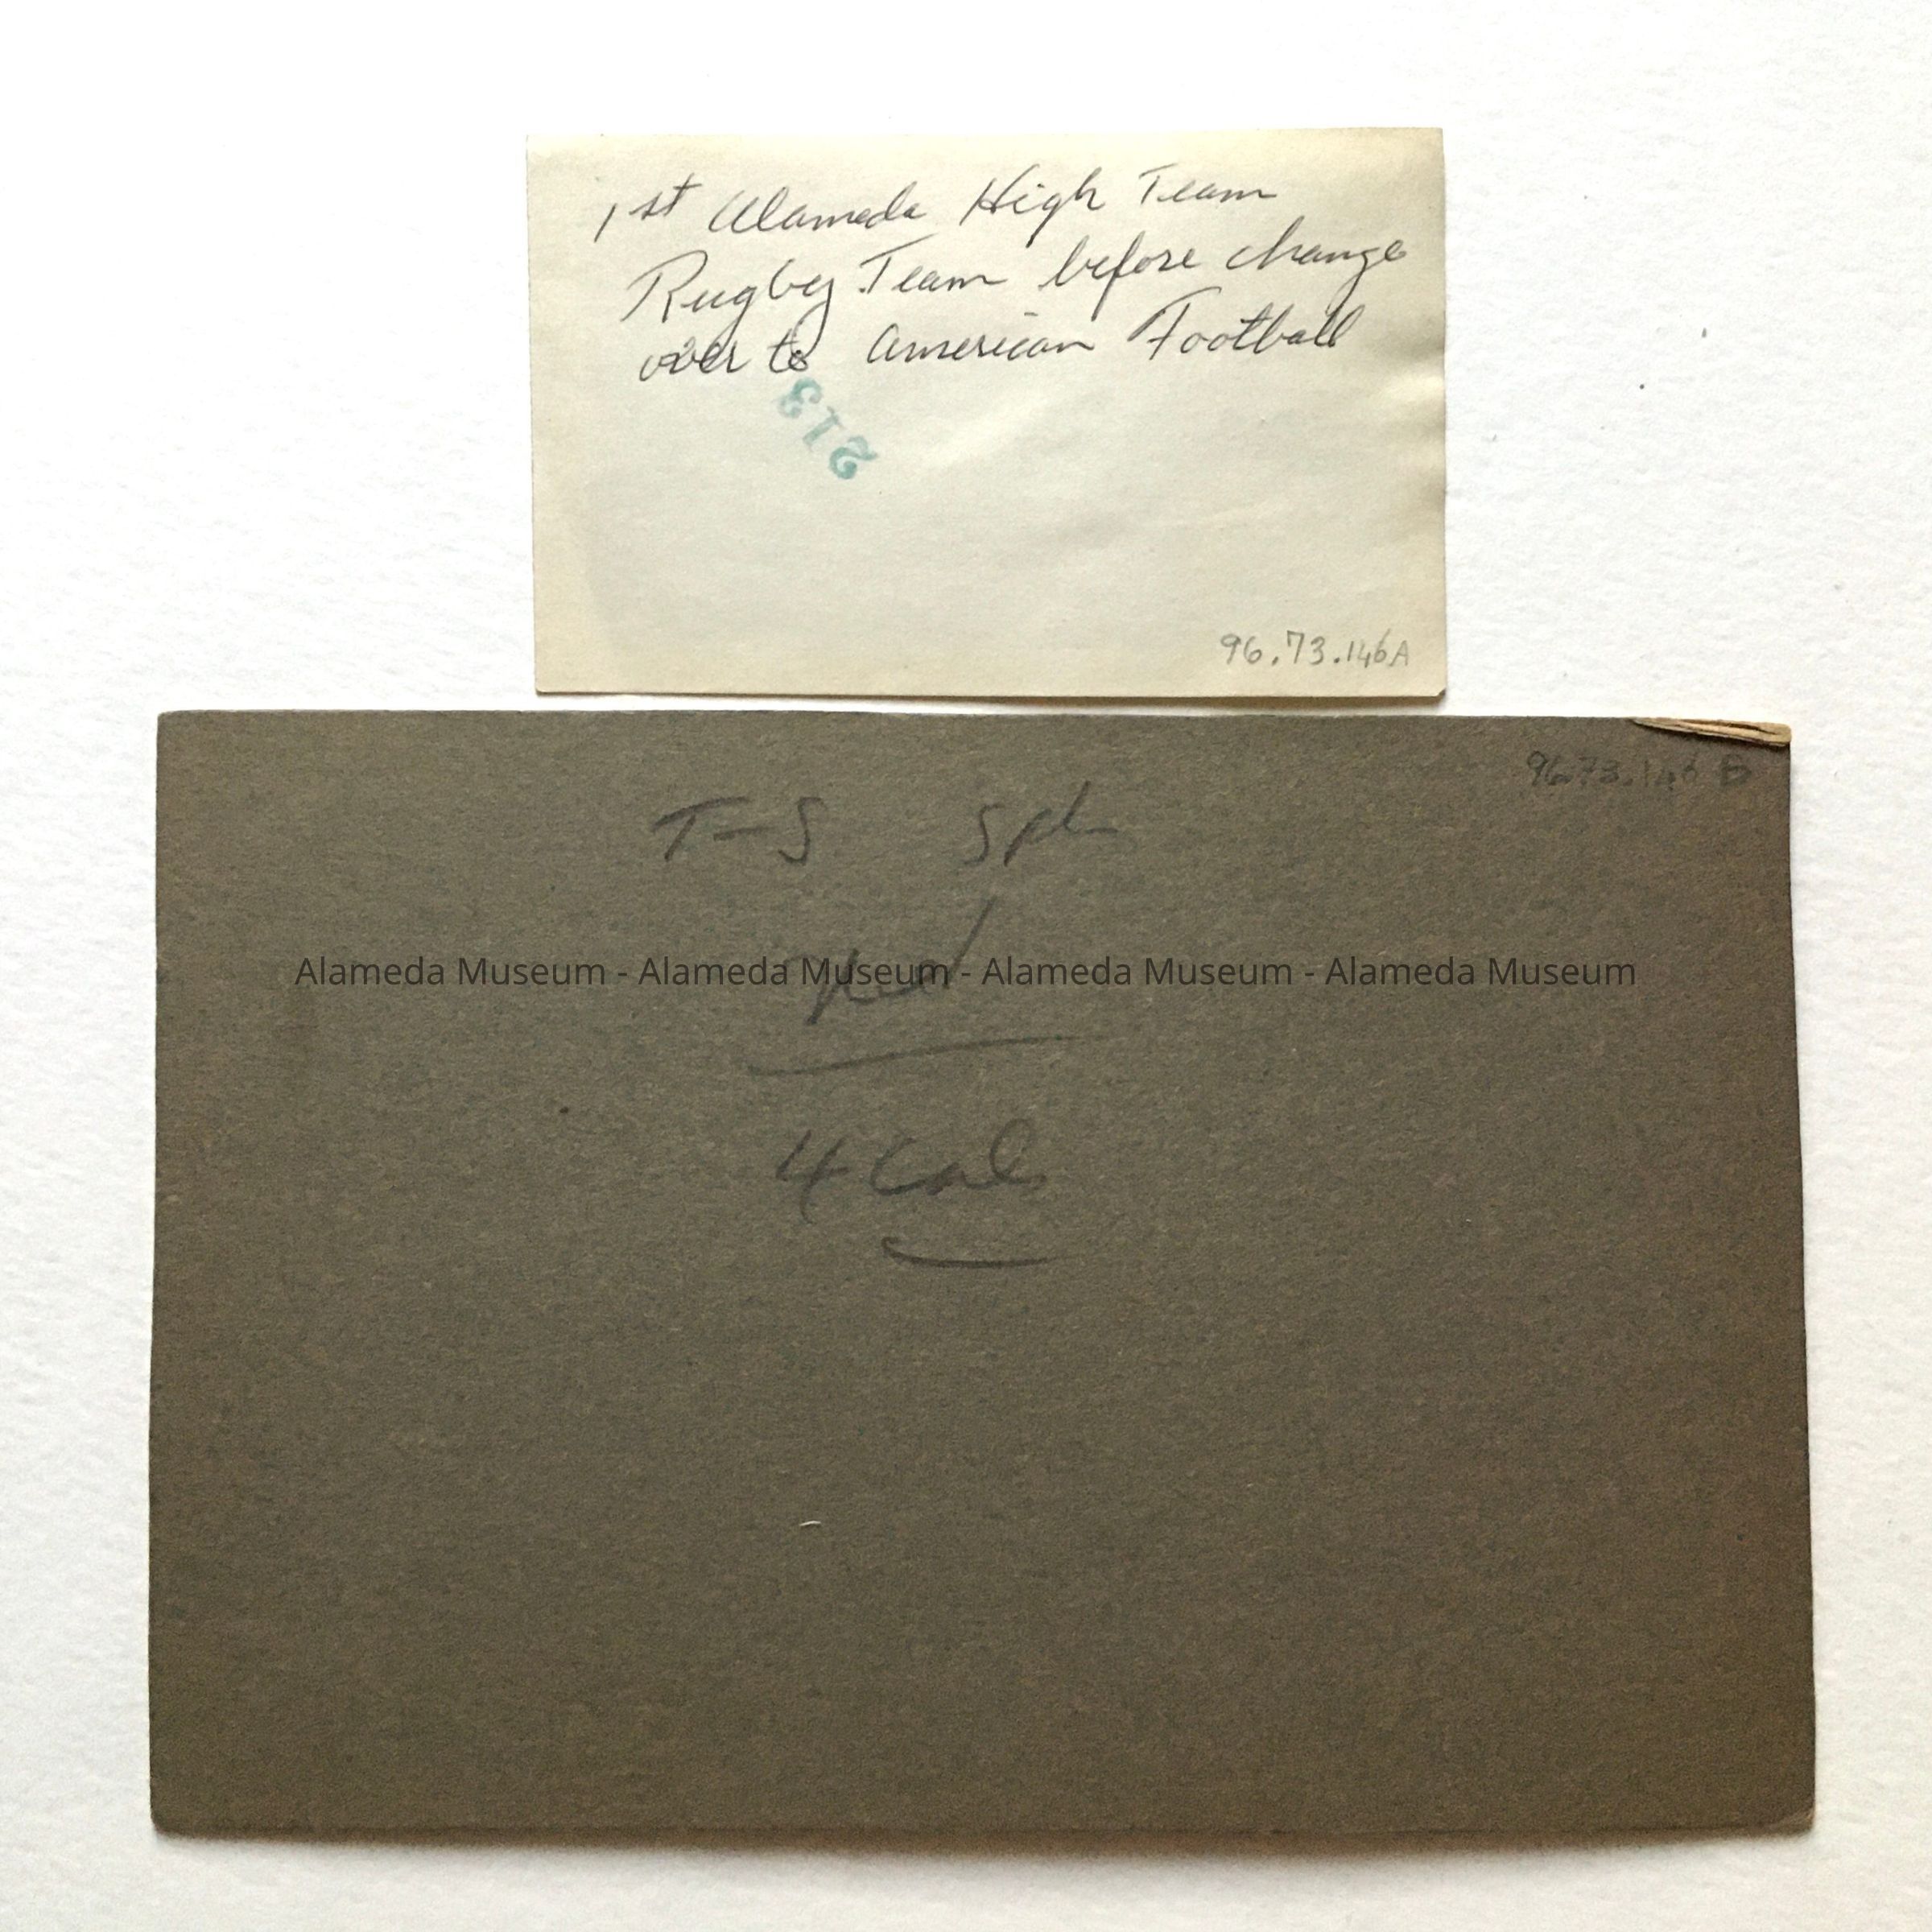 1st Alameda High Team
Rugby Team before change
over to American Football
213
96.73.146A
96.73.146 B
T-S Spl
Alameda Museum - Alameda Museum - Alameda Museum - Alameda Museum
4 Cols